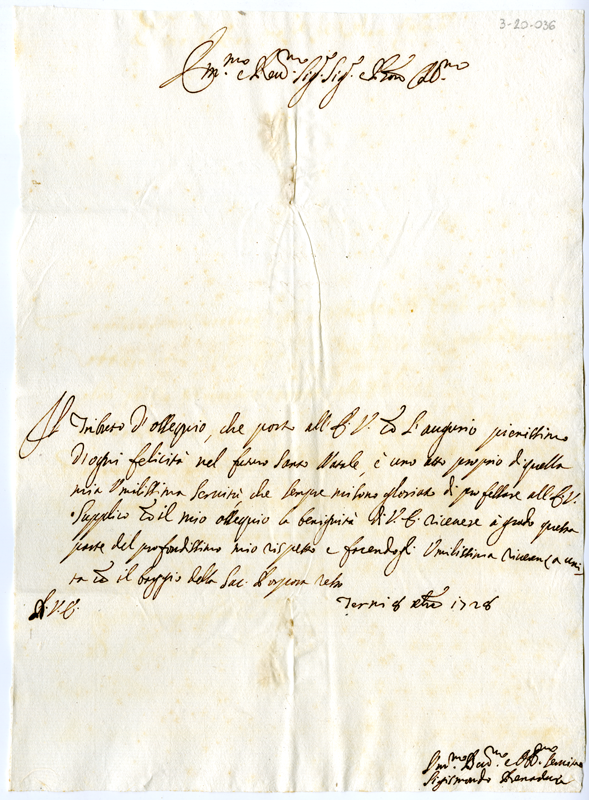 3-20-036
Em.mo e Rev.mo Sig.r Sig.r e Pron Col.mo
Il Tributo d'ossequio, che porto all'E. V. co l'augurio pienissimo
d'ogni felicità nel futuro Santo Natale, è uno atto proprio di quella
mia Umilissima Servitù che sempre mi sono gloriato di professare all'E. V.
Supplico co il mio ossequio la benignità di V. E. ricevere à grado questa
parte del profondissimo mio rispetto e facendogli Umilissima rive
ta co il baggio della Sac. Porpora resto
Di V. E.
Terni 8 xbre 1728
Um.mo Dev.mo e Obb.mo Servitore
Sigismondo